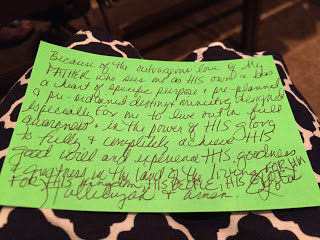 Because of the outrageous love of My
FATHER who sees me as HIS own & has
a heart of specific purpose & pre-planned
& pre-ordained destiny & ministry designed
especially for me to live out in full
awareness & in the power of HIS glory
to fully & completely achieve HIS
good word and experience HIS goodness
& greatness in the land of the living FOR HIM
FOR HIS kingdom, HIS PEOPLE, HIS
Hallelujah & amen